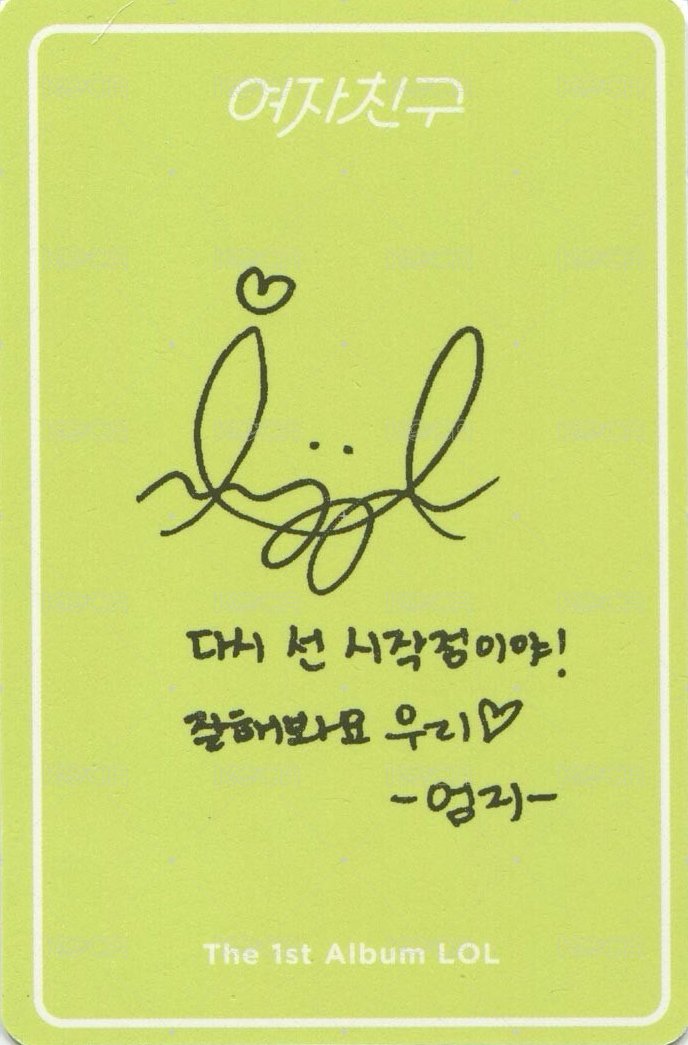 여자친구
다시 선 시작점이야!
잘해봐요 우리♡
-엄지-
The 1st Album LOL